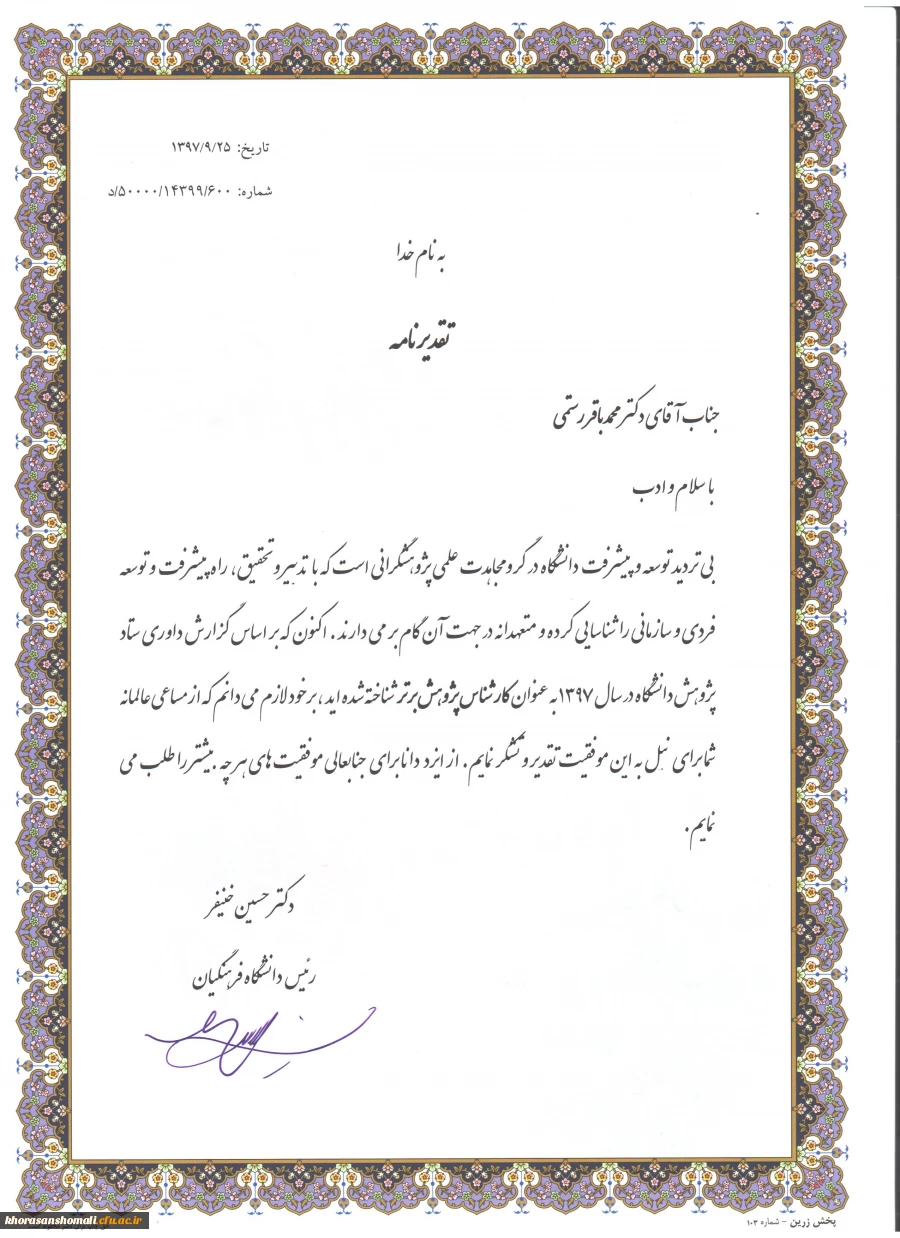 تاریخ: ۱۳۹۷/۹/۲۵
شماره: ۵۰۰۰۰/۱۴۳۹۹/۶۰۰/د
به نام خدا
تقدیرنامه
جناب آقای دکتر محمدباقر رستمی
با سلام و ادب
بی تردید توسعه و پیشرفت دانشگاه در گرو مجاهدت علمی پژوهشگرانی است که با تدبیر و تحقیق، راه پیشرفت و توسعه
فردی و سازمانی را شناسایی کرده و متعهدانه در جهت آن گام بر می دارند. اکنون که بر اساس گزارش داوری ستاد
پژوهش دانشگاه در سال ۱۳۹۷ به عنوان کارشناس پژوهش برتر شناخته شده اید، بر خود لازم می دانم که از مساعی عالمانه
شما برای نیل به این موفقیت تقدیر و تشکر نمایم. از ایزد دانا برای جنابعالی موفقیت های هر چه بیشتر را طلب می
نمایم.
دکتر حسین خنیفر
رئیس دانشگاه فرهنگیان
پخش زرین - شماره ۱۰۳
khorasanshomali.cfu.ac.ir